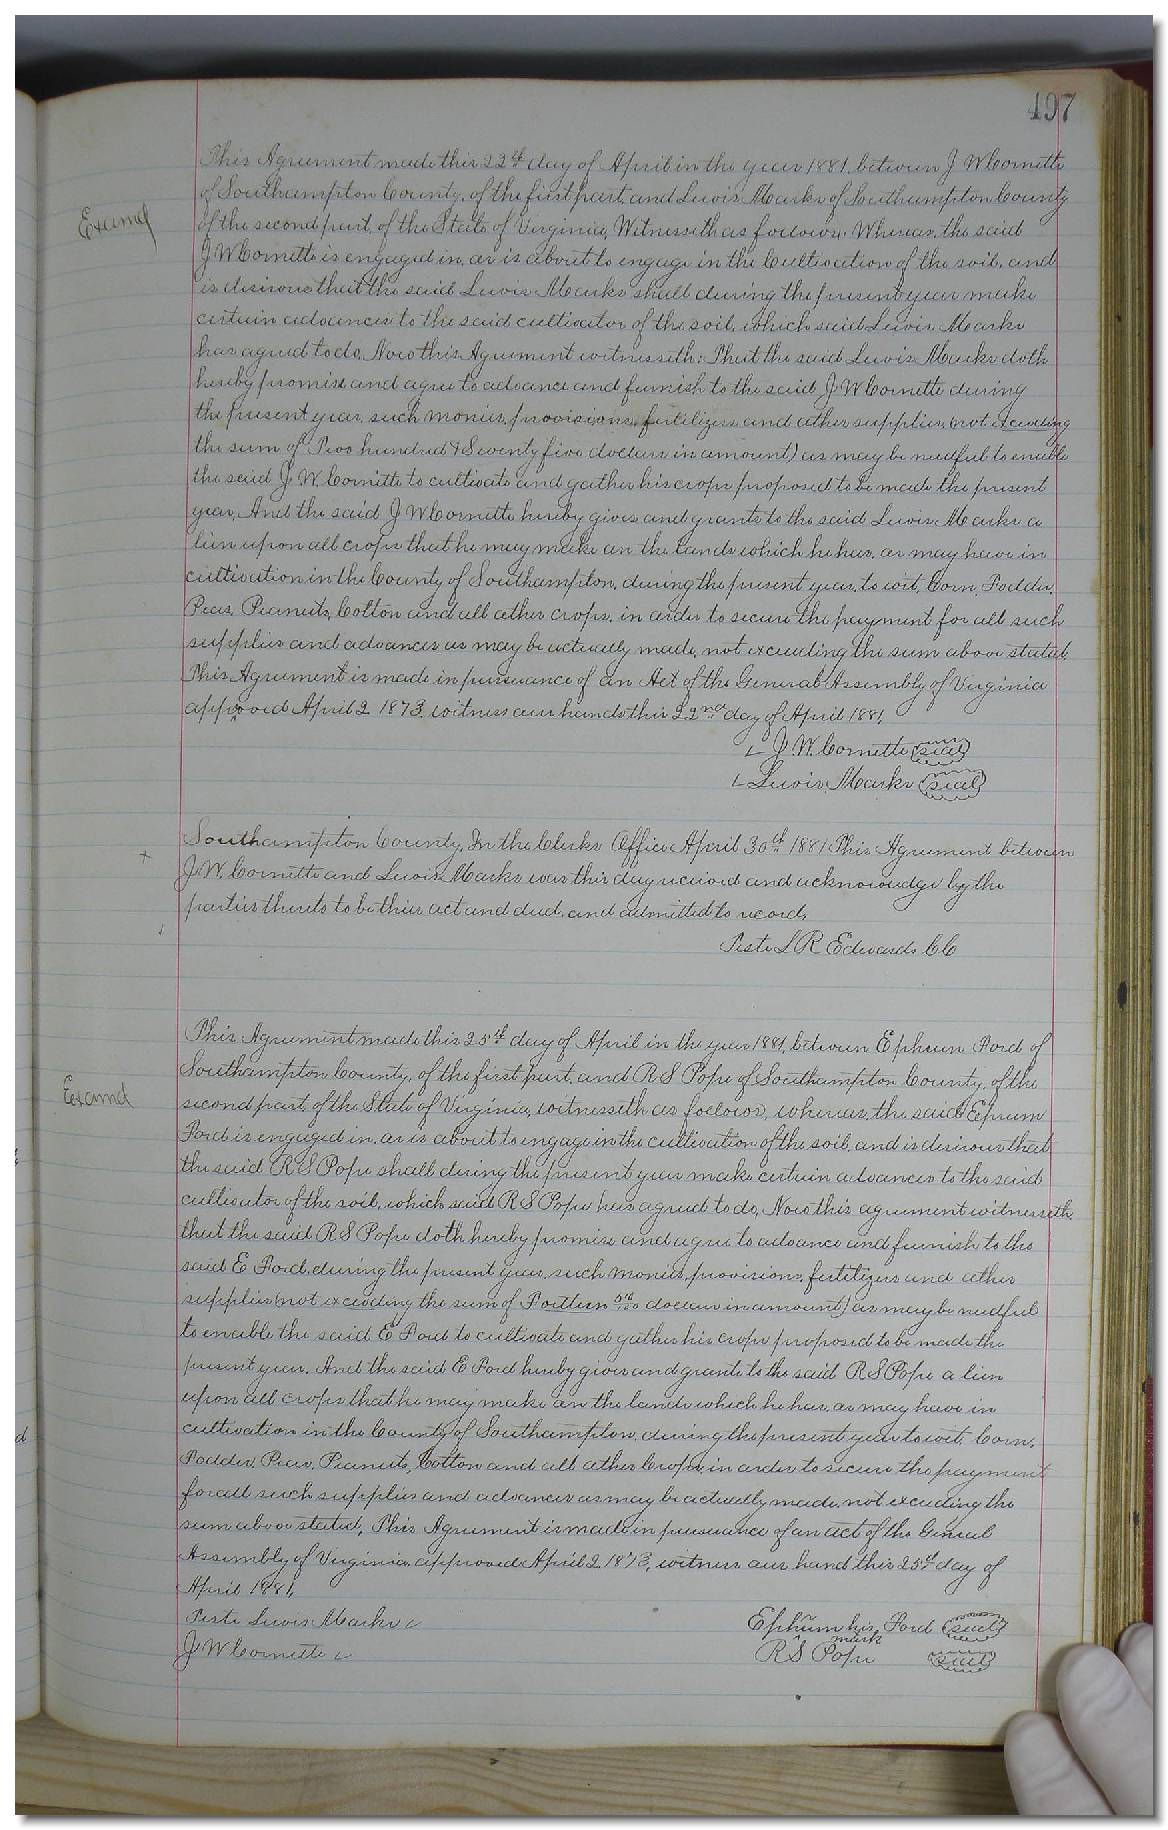 497
This Agreement made this 22nd day of April in the year 1881, between J W Cornette
of Southampton County, of the first part, and Lewis Marks of Southampton County
Examd
of the second part, of the State of Virginia, Witnesseth as follows. Whereas, the said
J W Cornette is engaged in, or is about to engage in the Cultivation of the soil, and
is desirous that the said Lewis Marks shall during the present year make
certain advances to the said cultivator of the soil, which said Lewis Marks
has agreed to do, Now this Agreement witnesseth: That the said Lewis Marks doth
hereby promise and agree to advance and furnish to the said J W Cornette during
the present year, such monies, provisions, fertilizers and other supplies, (not exceeding
the sum of Two hundred & Seventy five dollars in amount) as may be needful to enable
the said J. W. Cornette to cultivate and gather his crops proposed to be made the present
year, And the said J W Cornette hereby gives and grants to the said Lewis Marks a
lien upon all crops that he may make on the lands which he has, or may have in
cultivation in the County of Southampton, during the present year, to wit, Corn, Fodder,
Peas, Peanuts, Cotton and all other crops, in order to secure the payment for all such
supplies and advances as may be actually made, not exceeding the sum above stated.
This Agreement is made in pursuance of an Act of the General Assembly of Virginia
approved April 2 1873, witness our hands this 22nd day of April 1881,
J. W. Cornette (seal)
Lewis Marks (seal)
Southampton County, In the Clerks Office April 30th 1881 This Agreement between
J. W. Cornette and Lewis Marks was this day received and acknowledge by the
parties thereto to be their act and deed, and admitted to record,
Teste L R Edwards CC
This Agreement made this 25th day of April in the year 1881, between Ephrum Ford of
Southampton County, of the first part, and R S Pope of Southampton County, of the
Examd
second part, of the State of Virginia, witnesseth as follows, whereas, the said Ephrum
Ford is engaged in, or is about to engage in the cultivation of the soil, and is desirous that
the said R S Pope shall during the present year make certain advances to the said
cultivator of the soil, which said R S Pope has agreed to do, Now this agreement witnesseth,
that the said R S Pope doth hereby promise and agree to advance and furnish to the
said E Ford, during the present year, such monies, provisions, fertilizers and other
supplies (not exceeding the sum of Fourteen 50/100 dollars in amount) as may be needful
to enable the said E Ford to cultivate and gather his crops proposed to be made the
present year. And the said E Ford hereby gives and grants to the said R S Pope a lien
upon all crops that he may make on the lands which he has, or may have in
cultivation in the County of Southampton, during the present year to wit, Corn,
Fodder, Peas, Peanuts, Cotton and all other Crops, in order to secure the payment
for all such supplies and advances as may be actually made, not exceeding the
sum above stated, This Agreement is made in pursuance of an act of the General
Assembly of Virginia, approved April 2 1873, witness our hand this 25th day of
April 1881,
Teste Lewis Marks
Ephrum his Ford (seal)
mark
J W Cornette
R S Pope (seal)